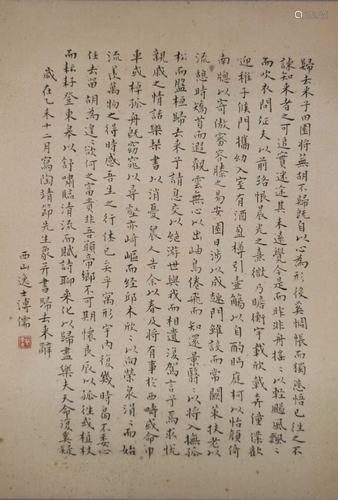 歸去來兮田園將蕪胡不歸既自以心為形役奚惆悵而獨悲悟已往之不
諫知來者之可追實迷途其未遠覺今是而昨非舟搖搖以輕颺風飄飄
而吹衣問征夫以前路恨晨光之熹微乃瞻衡宇載欣載奔僮僕歡
迎稚子候門攜幼入室有酒盈樽引壺觴以自酌眄庭柯以怡顏倚
南牕以寄傲審容膝之易安園日涉以成趣門雖設而常關策扶老以
流憩時矯首而遐觀雲無心以出岫鳥倦飛而知還景翳翳以將入撫孤
松而盤桓歸去來兮請息交以絕游世與我而相遺復駕言兮焉求悅
親戚之情話樂琴書以消憂農人告余以春及將有事於西疇或命巾
車或棹孤舟既窈窕以尋壑亦崎嶇而經邱木欣欣以向榮泉涓涓而始
流羨萬物之得時感吾生之行休已矣乎寓形宇內復幾時曷不委心
任去留胡為遑遑欲何之富貴非吾願帝鄉不可期懷良辰以孤往或植杖
而耘耔登東皋以舒嘯臨清流而賦詩聊乘化以歸盡樂夫天命復奚疑
歲在乙未十一月寫陶靖節先生象并書歸去來辭
西山逸士溥儒